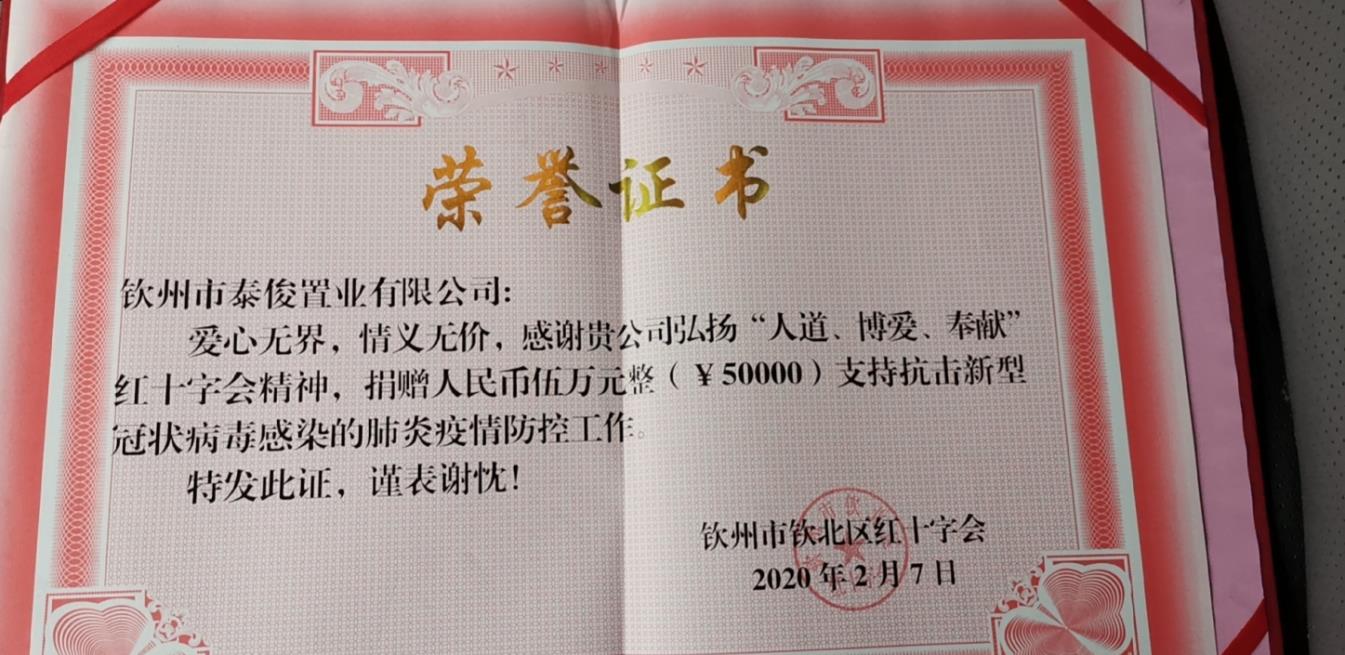 荣誉证书
钦州市泰俊置业有限公司:
爱心无界，情义无价，感谢贵公司弘扬“人道、博爱、奉献”
红十字会精神，捐赠人民币伍万元整（￥50000）支持抗击新型
冠状病毒感染的肺炎疫情防控工作。
特发此证，谨表谢忱！
钦州市钦北区红十字会
2020年2月7日